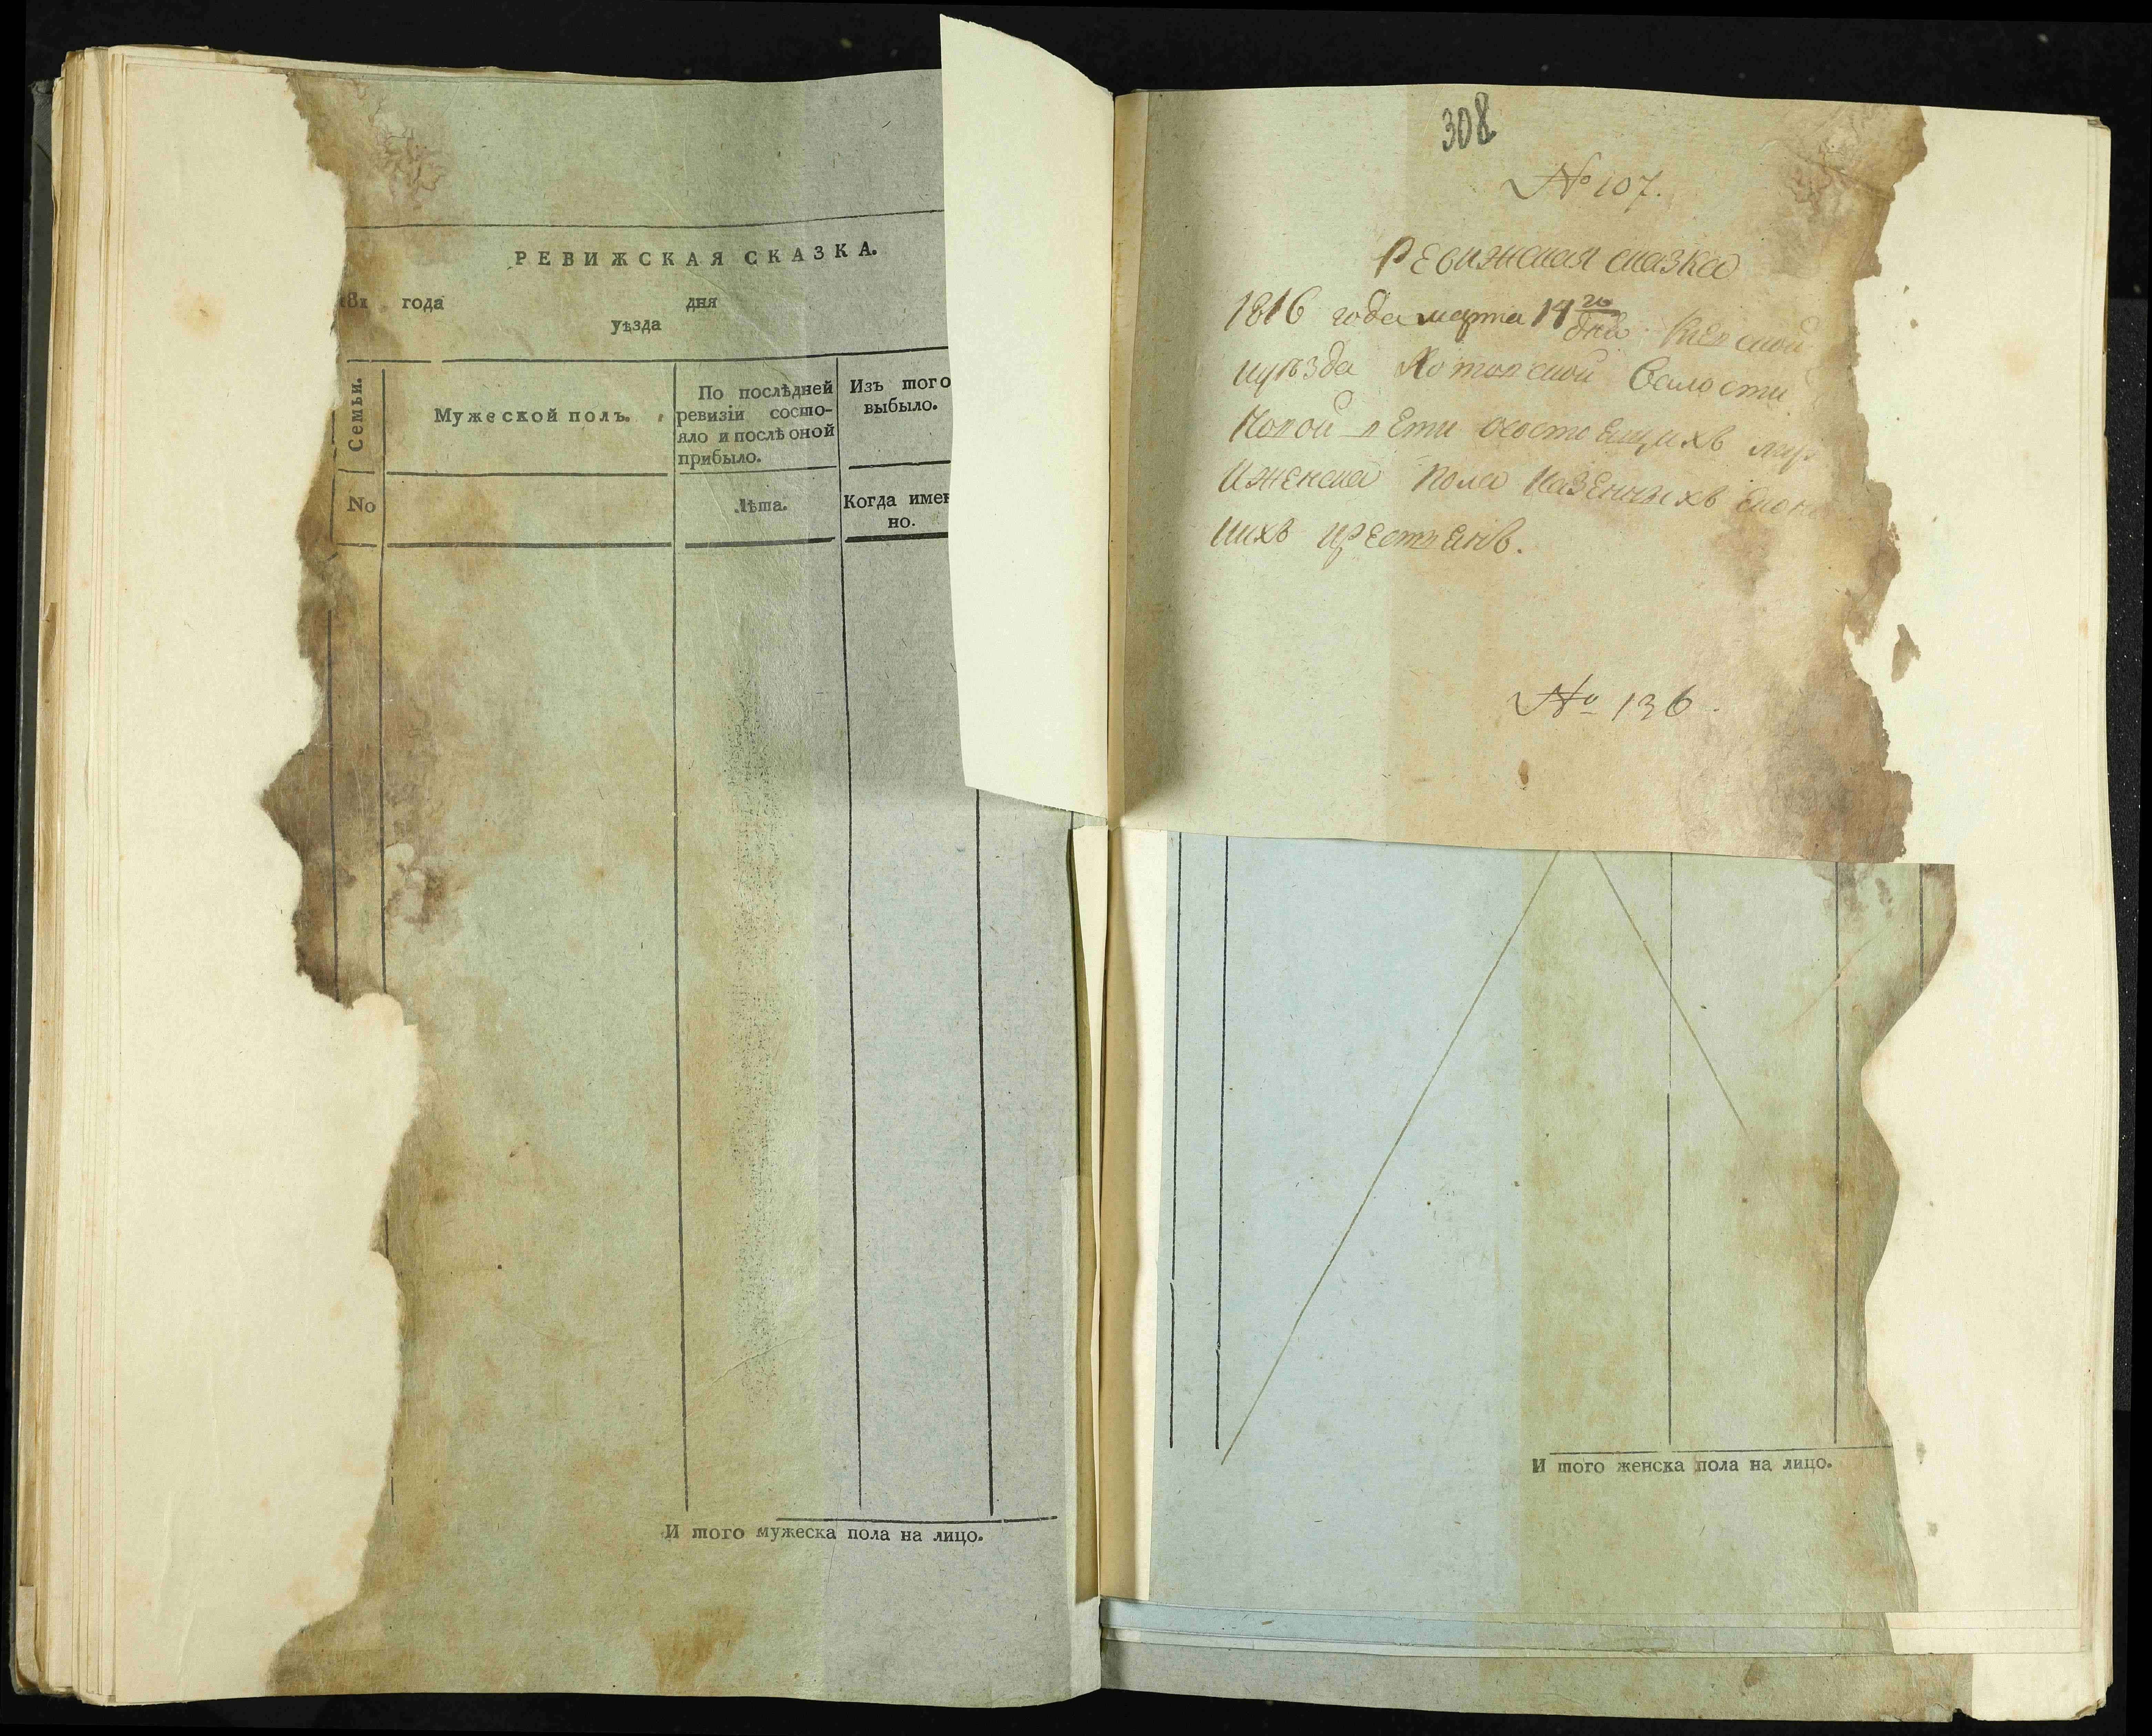 РЕВИЖСКАЯ СКАЗКА.
181 года дня
уѣзда
Семьи.
Мужеской полъ.
По послѣдней
ревизіи состо-
яло и послѣ оной
прибыло.
Изъ того
выбыло.
No
Лѣта.
Когда имен
но.
И того мужеска пола на лицо.
308
№ 107.
Ревижская сказка
1816 года марта 14 го дня
уѣзда волости
состоящихъ
и женска пола казенныхъ
крестьянъ.
№ 136
И того женска пола на лицо.